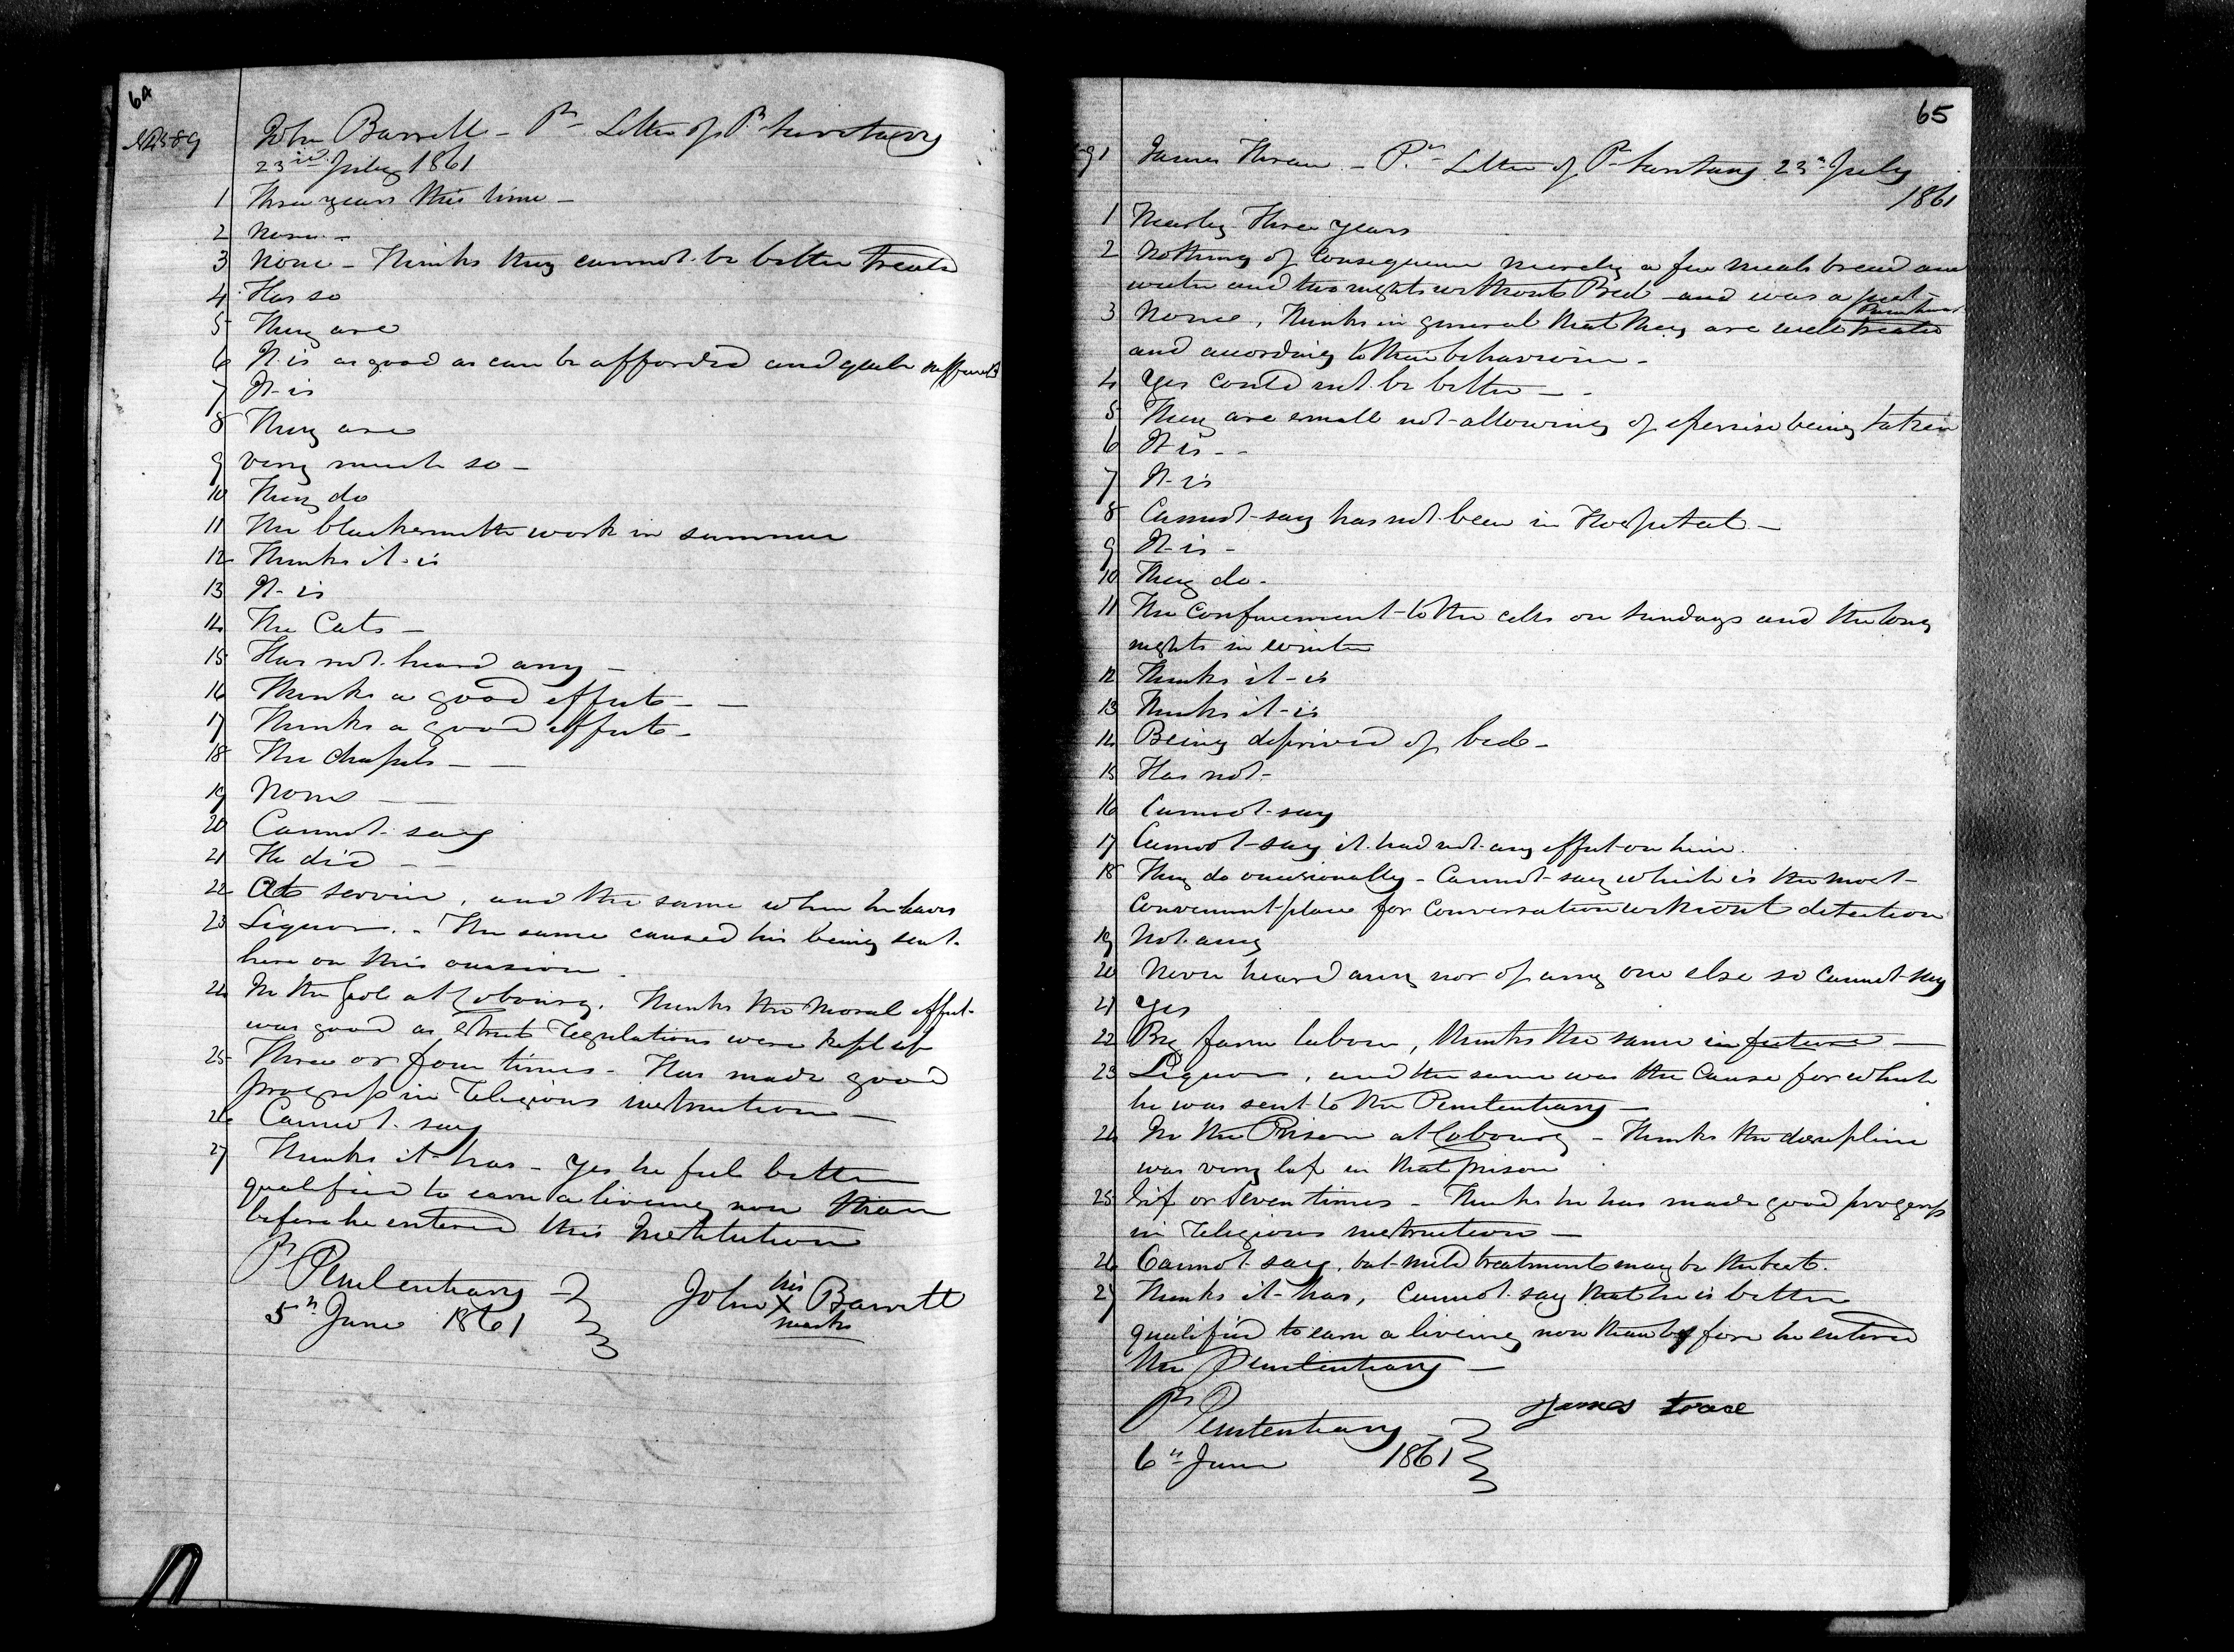 64
John Barrett - Pr Letter of P. Secretary
23rd July 1861
1 Three years this time -
2 None -
3 None - Thinks they cannot be better treated
4 Has so
5 They are
6 It is as good as can be afforded and quite sufficient
7 It is
8 They are
9 Very much so -
10 They do
11 The blacksmith work in summer
12 Thinks it is
13 It is
14 The Cats -
15 Has not heard any -
16 Thinks a good effect - -
17 Thinks a good effect -
18 The chapels - -
19 None - -
20 Cannot say
21 He did - -
22 At service, and the same when he leaves
23 Liquor. - The same caused his being sent
here on this occasion.
24 In the Gaol at Cobourg. Thinks the moral effect
was good as strict regulations were kept up
25 Three or four times - Has made good
progress in religious instruction -
26 Cannot say
27 Thinks it has - yes he feels better
qualified to earn a liveing now than
before he entered this Institution
Pr Penitentiary
5th June 1861
his
John X Barrett
mark
65
91 James - Pr Letter of P. Secretary 23rd July
1861
1 Nearly three years
2 Nothing of consequence merely a few meals bread and
water and two nights without Bed - and was a just
Punishment
3 None, Thinks in general that they are well treated
and according to their behaviour -
4 Yes could not be better - -
5 They are small not allowing of exercise being taken
6 It is - -
7 It is
8 Cannot say has not been in Hospital -
9 It is -
10 They do -
11 The confinement to the cells on Sundays and the long
nights in winter
12 Thinks it is
13 Thinks it is
14 Being deprived of bed -
15 Has not -
16 Cannot say
17 Cannot say it had not any effect on him.
18 They do occasionally - Cannot say which is the most
convenient place for conversation without detection
19 Not any
20 Never heard any nor of any one else so cannot say
21 Yes
22 By farm labour, thinks the same in future -
23 Liquor, and the same was the cause for which
he was sent to the Penitentiary -
24 In the Prison at Cobourg - Thinks the discipline
was very lax in that prison
25 Six or Seven times - Thinks he has made good progress
in religious instruction -
26 Cannot say, but mild treatment may be the best.
27 Thinks it has, Cannot say that he is better
qualified to earn a liveing now than before he entered
the Penitentiary -
Pr Penitentiary
6th June 1861
James trace